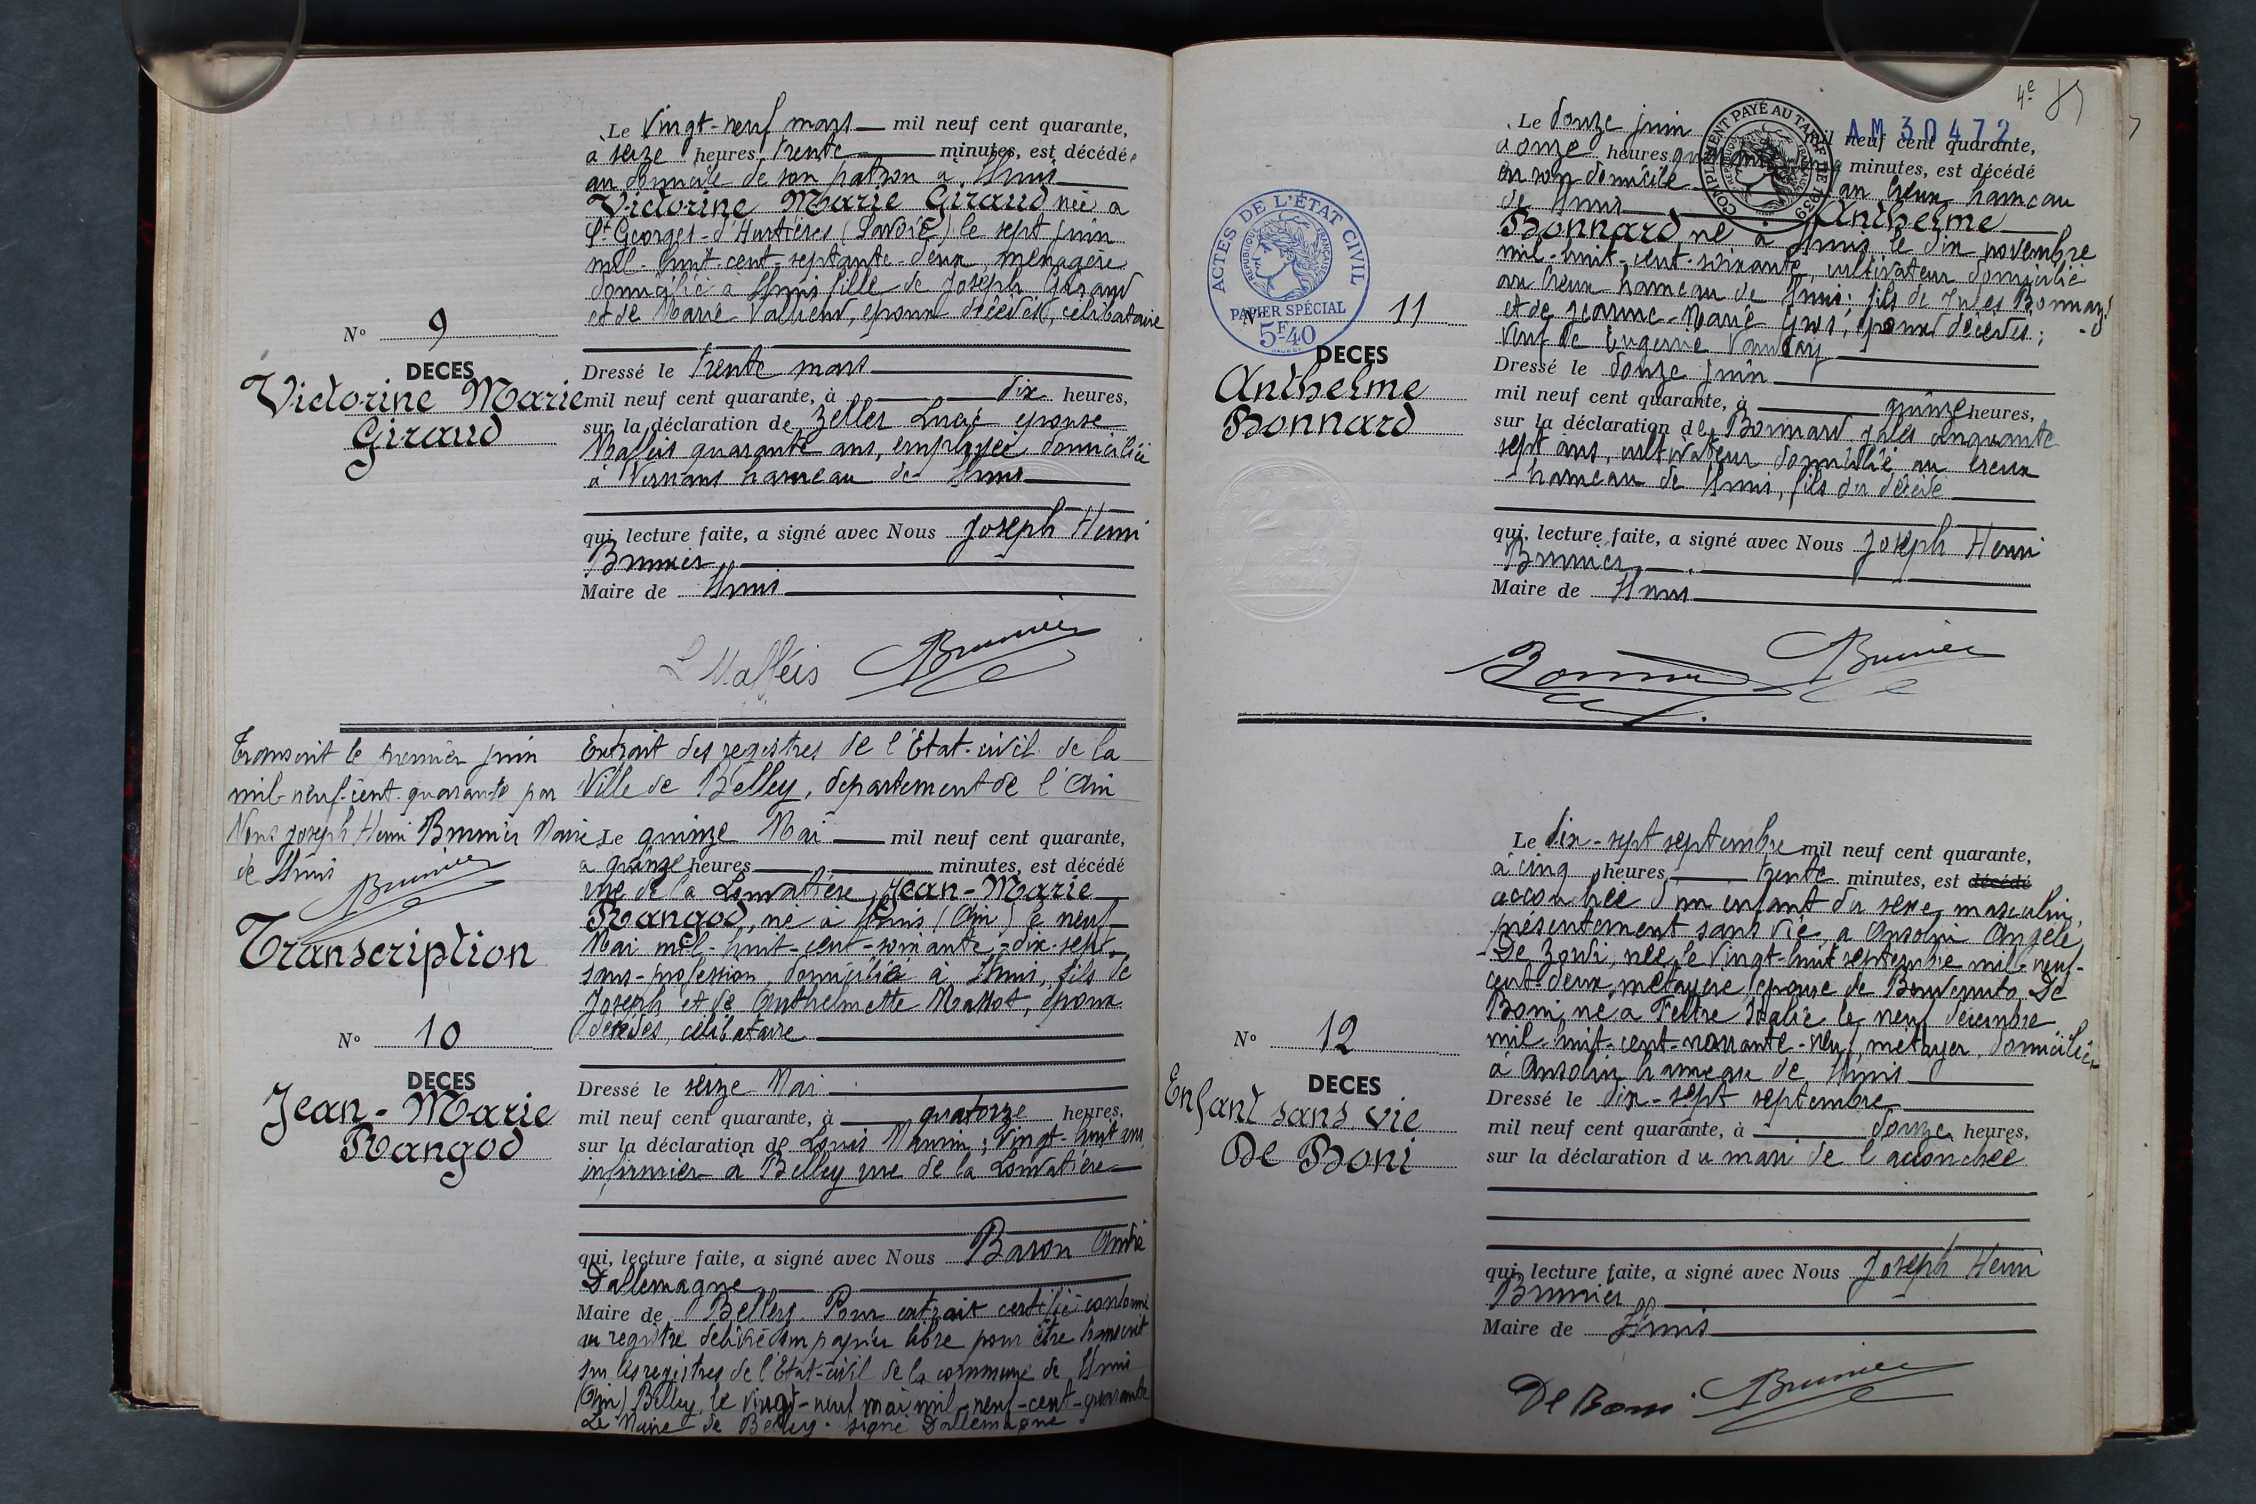 Le vingt-neuf mars mil neuf cent quarante,
à seize heures trente minutes, est décédée
au domicile de son patron à Lhuis
Victorine Marie Giraud née à
St Georges-d'Hurtières (Savoie) le sept juin
mil-huit-cent-septante-deux, ménagère
domiciliée à Lhuis fille de Joseph Giraud
et de Marie, époux décédés, célibataire
N° 9
DECES
Victorine Marie
Giraud
Dressé le trente mars
mil neuf cent quarante, à dix heures,
sur la déclaration de Zeller Lucie épouse
Mafféis quarante ans, employée domiciliée
à hameau de Lhuis
qui, lecture faite, a signé avec Nous Joseph Henri
Brunier
Maire de Lhuis
L Mafféis Brunier
Transcrit le premier juin
mil-neuf-cent-quarante par
Nous Joseph Henri Brunier Maire
de Lhuis
Brunier
Transcription
N° 10
DECES
Jean-Marie
Rangod
Extrait des registres de l'Etat-civil de la
Ville de Belley, département de l'Ain
Le quinze Mai mil neuf cent quarante,
à quinze heures minutes, est décédé
rue de la Jean-Marie
Rangod, né à Lhuis (Ain) le neuf
Mai mil-huit-cent-soixante-dix-sept
sans-profession, domicilié à Lhuis, fils de
Joseph et de Anthelmette Massot, époux
décédés, célibataire
Dressé le seize Mai
mil neuf cent quarante, à quatorze heures,
sur la déclaration de Louis, vingt-huit ans,
infirmier à Belley rue de la
qui, lecture faite, a signé avec Nous Baron André
Dallemagne
Maire de Belley. Pour extrait certifié conforme
au registre délivré sur papier libre pour être transcrit
sur les registres de l'Etat-civil de la commune de Lhuis
(Ain) Belley, le vingt-neuf mai mil-neuf-cent-quarante
Le Maire de Belley. signé Dallemagne
4e 85
AM 30472
COMPLEMENT PAYÉ AU TARIF DE 1939
REPUBLIQUE FRANÇAISE
ACTES DE L'ÉTAT CIVIL
REPUBLIQUE FRANÇAISE
PAPIER SPÉCIAL
5F40
Le douze juin mil neuf cent quarante,
à onze heures minutes, est décédé
en son domicile au Creux hameau
de Lhuis Anthelme
Bonnard, né à Lhuis le dix novembre
mil-huit-cent-soixante, cultivateur domicilié
au Creux hameau de Lhuis; fils de Jules Bonnard
et de Jeanne-Marie, époux décédés;
veuf de Eugénie
N° 11
DECES
Anthelme
Bonnard
Dressé le douze juin
mil neuf cent quarante, à quinze heures,
sur la déclaration de Bonnard Jules cinquante
sept ans, cultivateur domicilié au Creux
hameau de Lhuis, fils du décédé
qui, lecture faite, a signé avec Nous Joseph Henri
Brunier
Maire de Lhuis
Bonnard Brunier
Le dix-sept septembre mil neuf cent quarante,
à cinq heures trente minutes, est décédé
accouchée d'un enfant du sexe masculin,
présentement sans vie, à Ansolin Angèle
née le vingt-huit septembre mil-neuf-
cent-deux, métayère, épouse de Benvenuto De
Boni, né à Feltre Italie le neuf décembre
mil-huit-cent-nonante-neuf, métayer, domiciliés
à Ansolin hameau de Lhuis
N° 12
DECES
Enfant sans vie
De Boni
Dressé le dix-sept septembre
mil neuf cent quarante, à douze heures,
sur la déclaration du mari de l'accouchée
qui, lecture faite, a signé avec Nous Joseph Henri
Brunier
Maire de Lhuis
De Boni Brunier